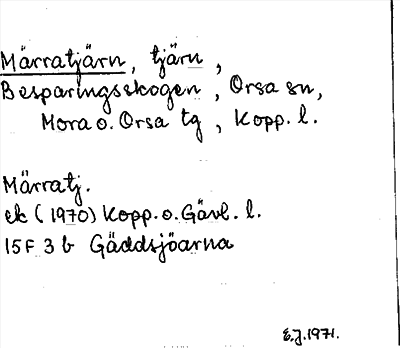 Märratjärn, tjärn,
Besparingsskogen, Orsa sn,
Mora o. Orsa tg, Kopp. l.
Märratj.
ek (1970) Kopp. o. Gävl. l.
15F 3b Gäddsjöarna
E.J. 1971.